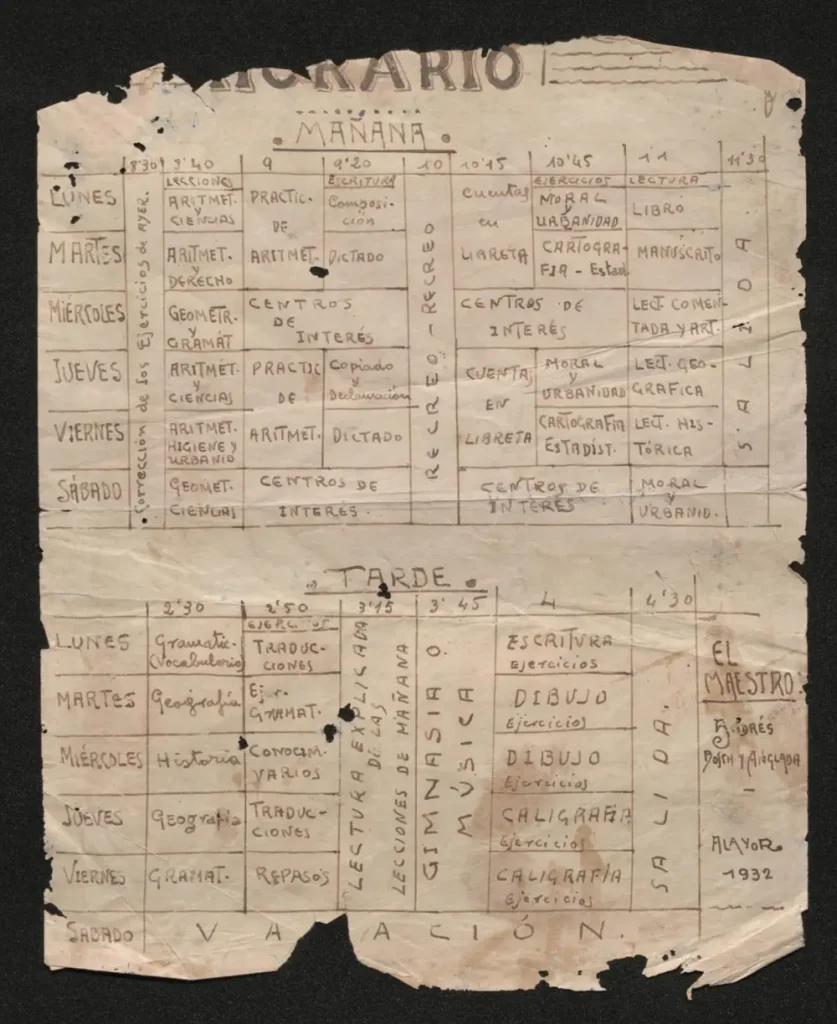 HORARIO
. MAÑANA .
8'30 8'40 9 9'20 10 10'15 10'45 11 11'30
LECCIONES ESCRITURA EJERCICIOS LECTURA
Corrección de los Ejercicios de AYER.
RECREO - RECREO
SALIDA
LUNES
ARITMET.
y
CIENCIAS
PRACTIC.
DE
ARITMET.
Composi-
ción
cuentas
en
LIBRETA
MORAL
y
URBANIDAD
LIBRO
MARTES
ARITMET.
y
DERECHO
DICTADO
CARTOGRA-
FIA - Estad
MANUSCRITO
MIÉRCOLES
GEOMETR.
y
GRAMAT
CENTROS
DE
INTERÉS
CENTROS DE
INTERÉS
LECT COMEN-
TADA Y ART.
JUEVES
ARITMÉT.
y
CIENCIAS
PRACTIC
DE
ARITMET.
Copiado
y
Declamación
CUENTAS
EN
LIBRETA
MORAL
y
URBANIDAD
LECT. GEO-
GRAFICA
VIERNES
ARITMET.
HIGIENE Y
URBANID
DICTADO
CARTOGRAFIA
ESTADÍST.
LECT. HIS-
TÓRICA
SÁBADO
GEOMET.
CIENCIAS
CENTROS DE
INTERÉS.
CENTROS DE
INTERÉS
MORAL
y
URBANID.
. TARDE .
2'30 2'50 3'15 3'45 4 4'30
LECTURA EXPLICADA
DE LAS
LECCIONES DE MAÑANA
GIMNASIA O
MÚSICA
SALIDA.
LUNES
Gramátic-
(Vocabulario)
TRADUC-
CIONES
ESCRITURA
Ejercicios
MARTES
Geografía
Ejer.
GRAMAT.
DIBUJO
Ejercicios
MIÉRCOLES
Historia
CONOCIM.
VARIOS
DIBUJO
Ejercicios
JUEVES
Geografía
TRADUC-
CIONES
CALIGRAFÍA
Ejercicios
VIERNES
GRAMAT.
REPASOS
CALIGRAFÍA
Ejercicios
SABADO
VACACIÓN.
EL
MAESTRO
ANDRÉS
BOSCH Y ANGLADA
ALAYOR
1932